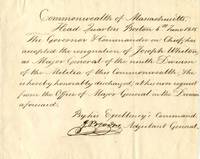 Commonwealth of Massachusetts.
Head Quarters Boston 4th June
The Governor & Commander in Chief, has
accepted the resignation of Joseph Whiton
as Major General of the ninth Division
of the Militia of this Commonwealth. He
is hereby honorably discharged, at his own request
from the Office of Major General in the Division
aforesaid.
By his Excellency's Command.
Adjutant General.